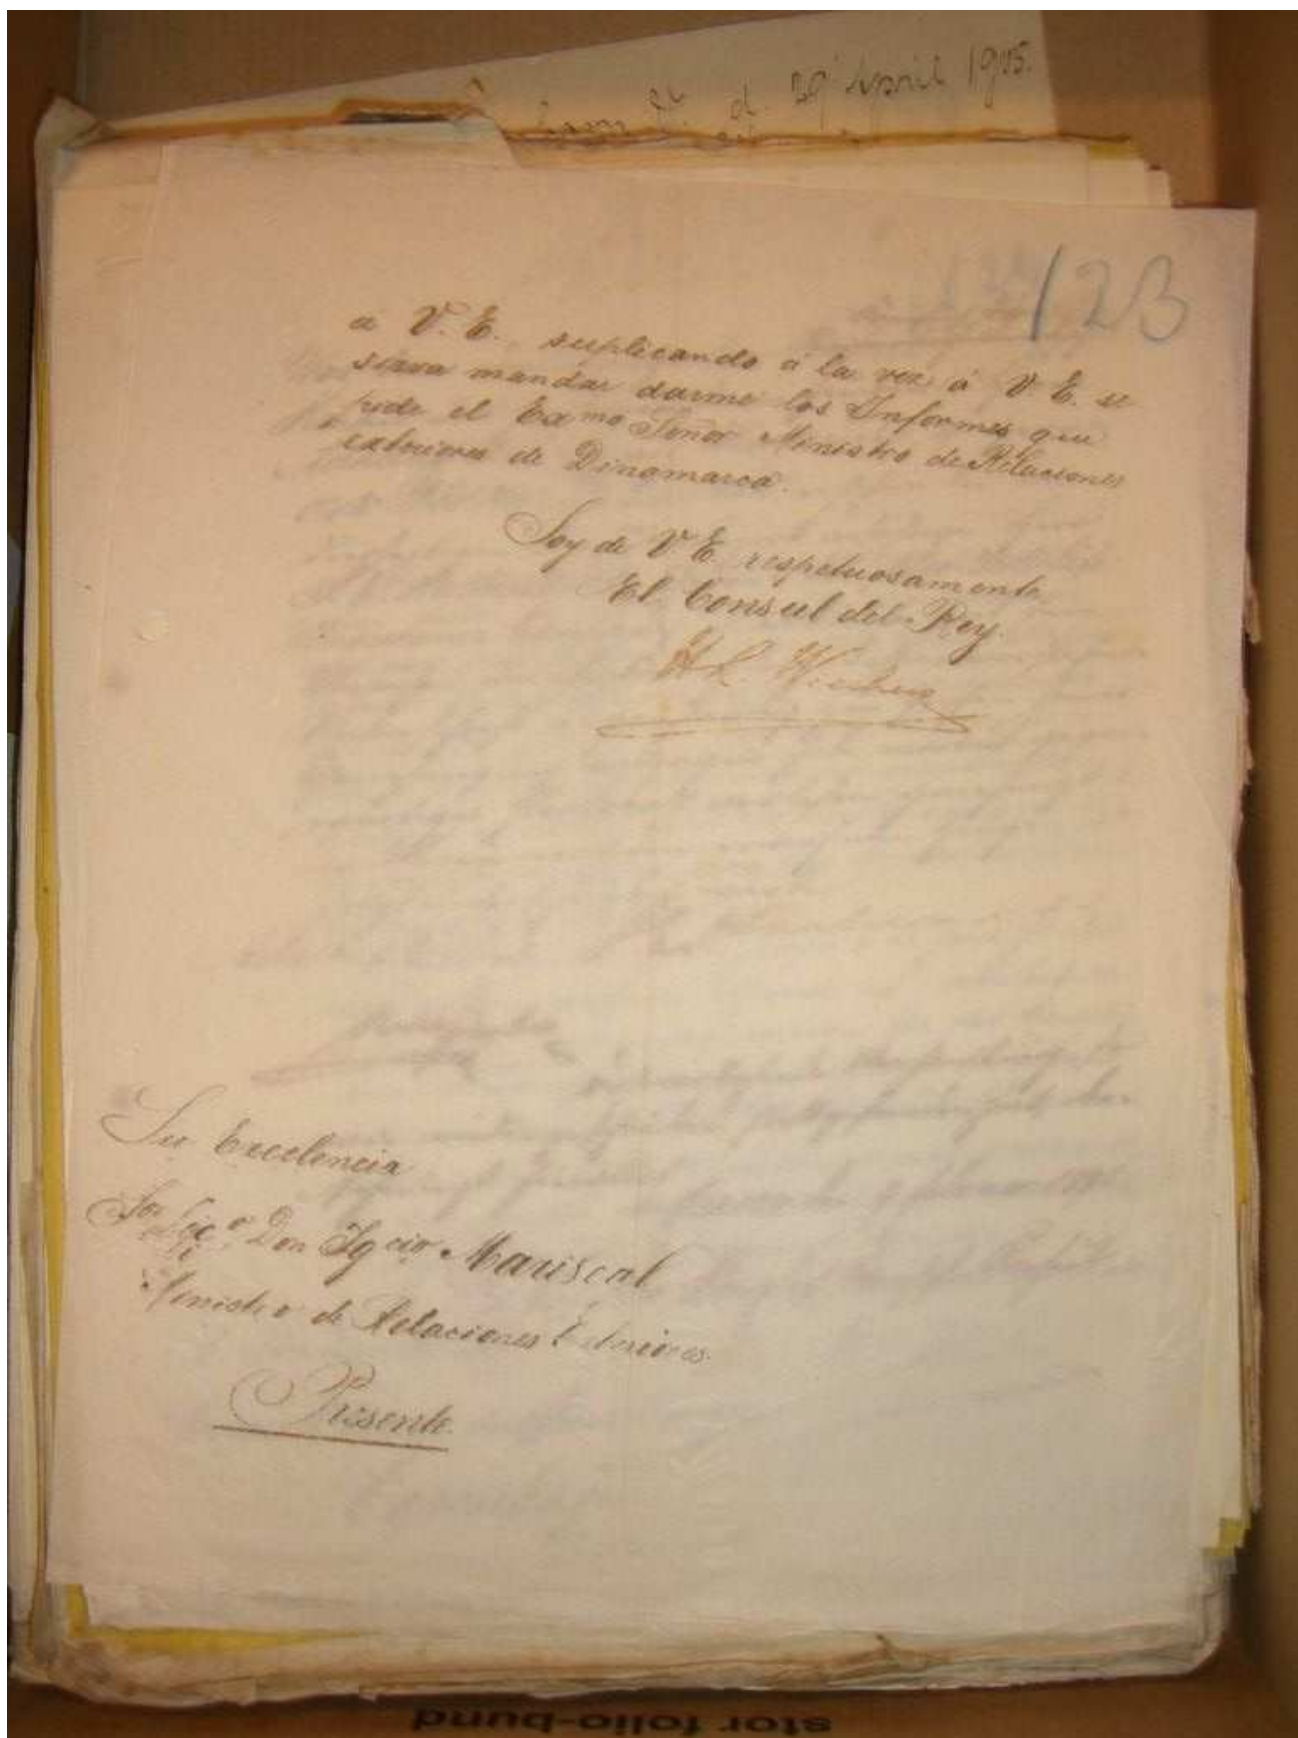 d. 29 April 1905.
123
a V. E. suplicando á la vez á V. E. se
sirva mandar darme los Informes que
pide el Exmo Señor Ministro de Relaciones
exteriores de Dinamarca.
Soy de V. E. respetuosamente
El Consul del Rey.
Su Excelencia
Sor Licdo Don Igcio Mariscal
Ministro de Relaciones Exteriores.
Presente.
stor folio-bund